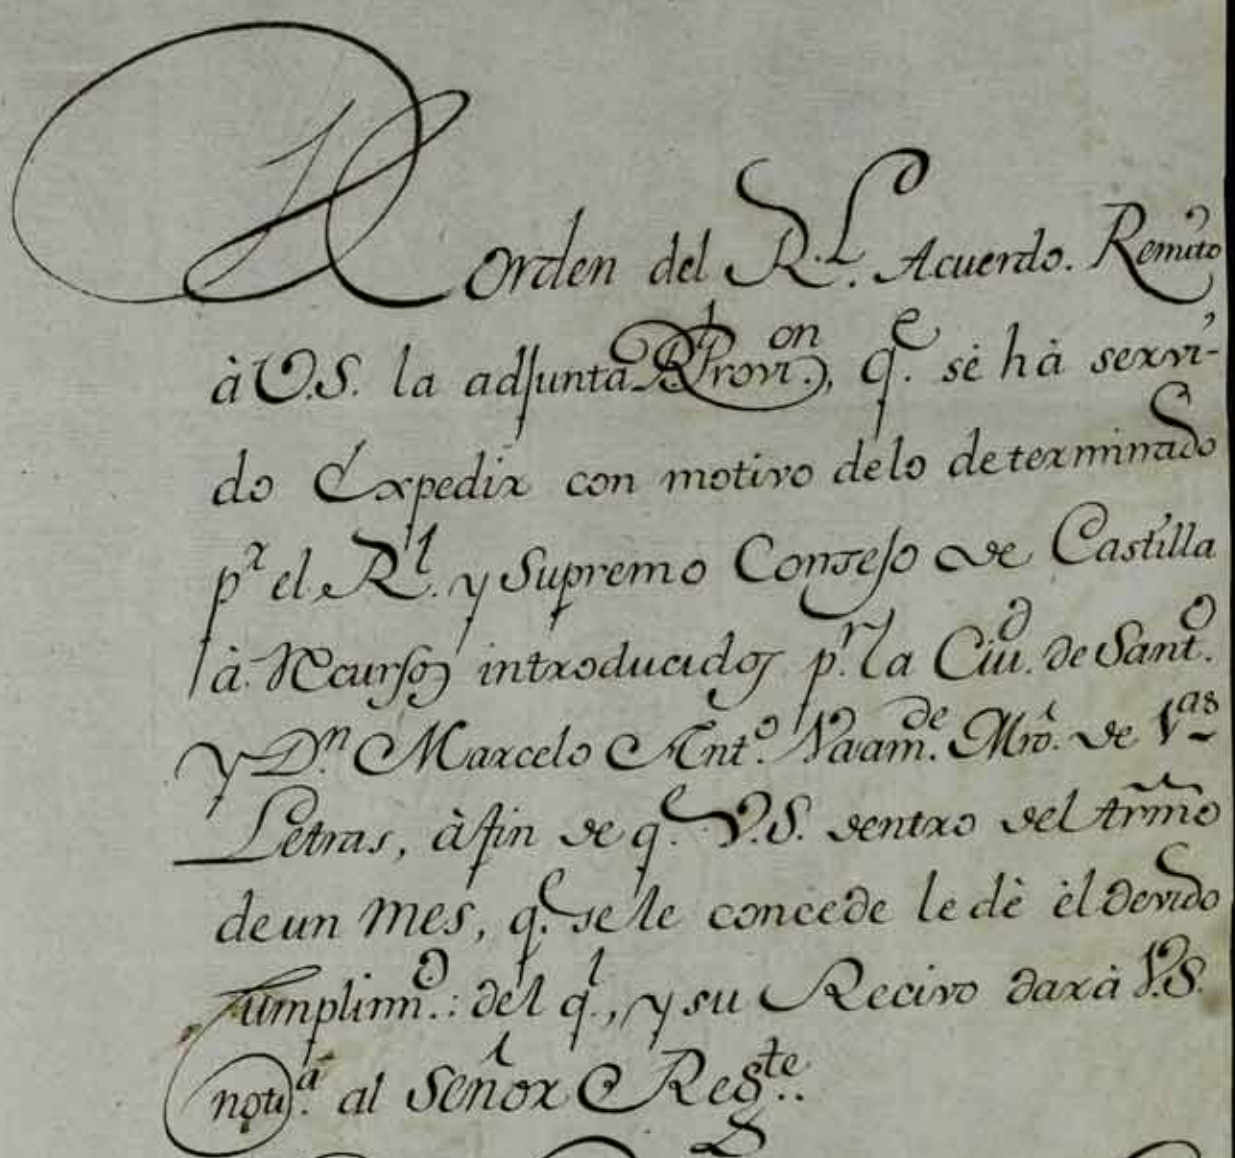 De orden del R.L Acuerdo. Remito
à V.S. la adjunta Rl Provi.on, q.e sè hà servi-
do Expedir con motivo delo determinado
p.r el R.l y Supremo Consejo de Castilla
à Recursos introducidos p.r la Ciu.d de Sant.o
y D.n Marcelo Ant.o Vaam.de Mro. de V.as
Letras, à fin de q.e V.S. dentro del trmño
de un mes, q.e se le concede le dè èl devido
Cumplim.o: del q.l, y su Recivo darà V.S.
noti.a al Señor Reg.te.